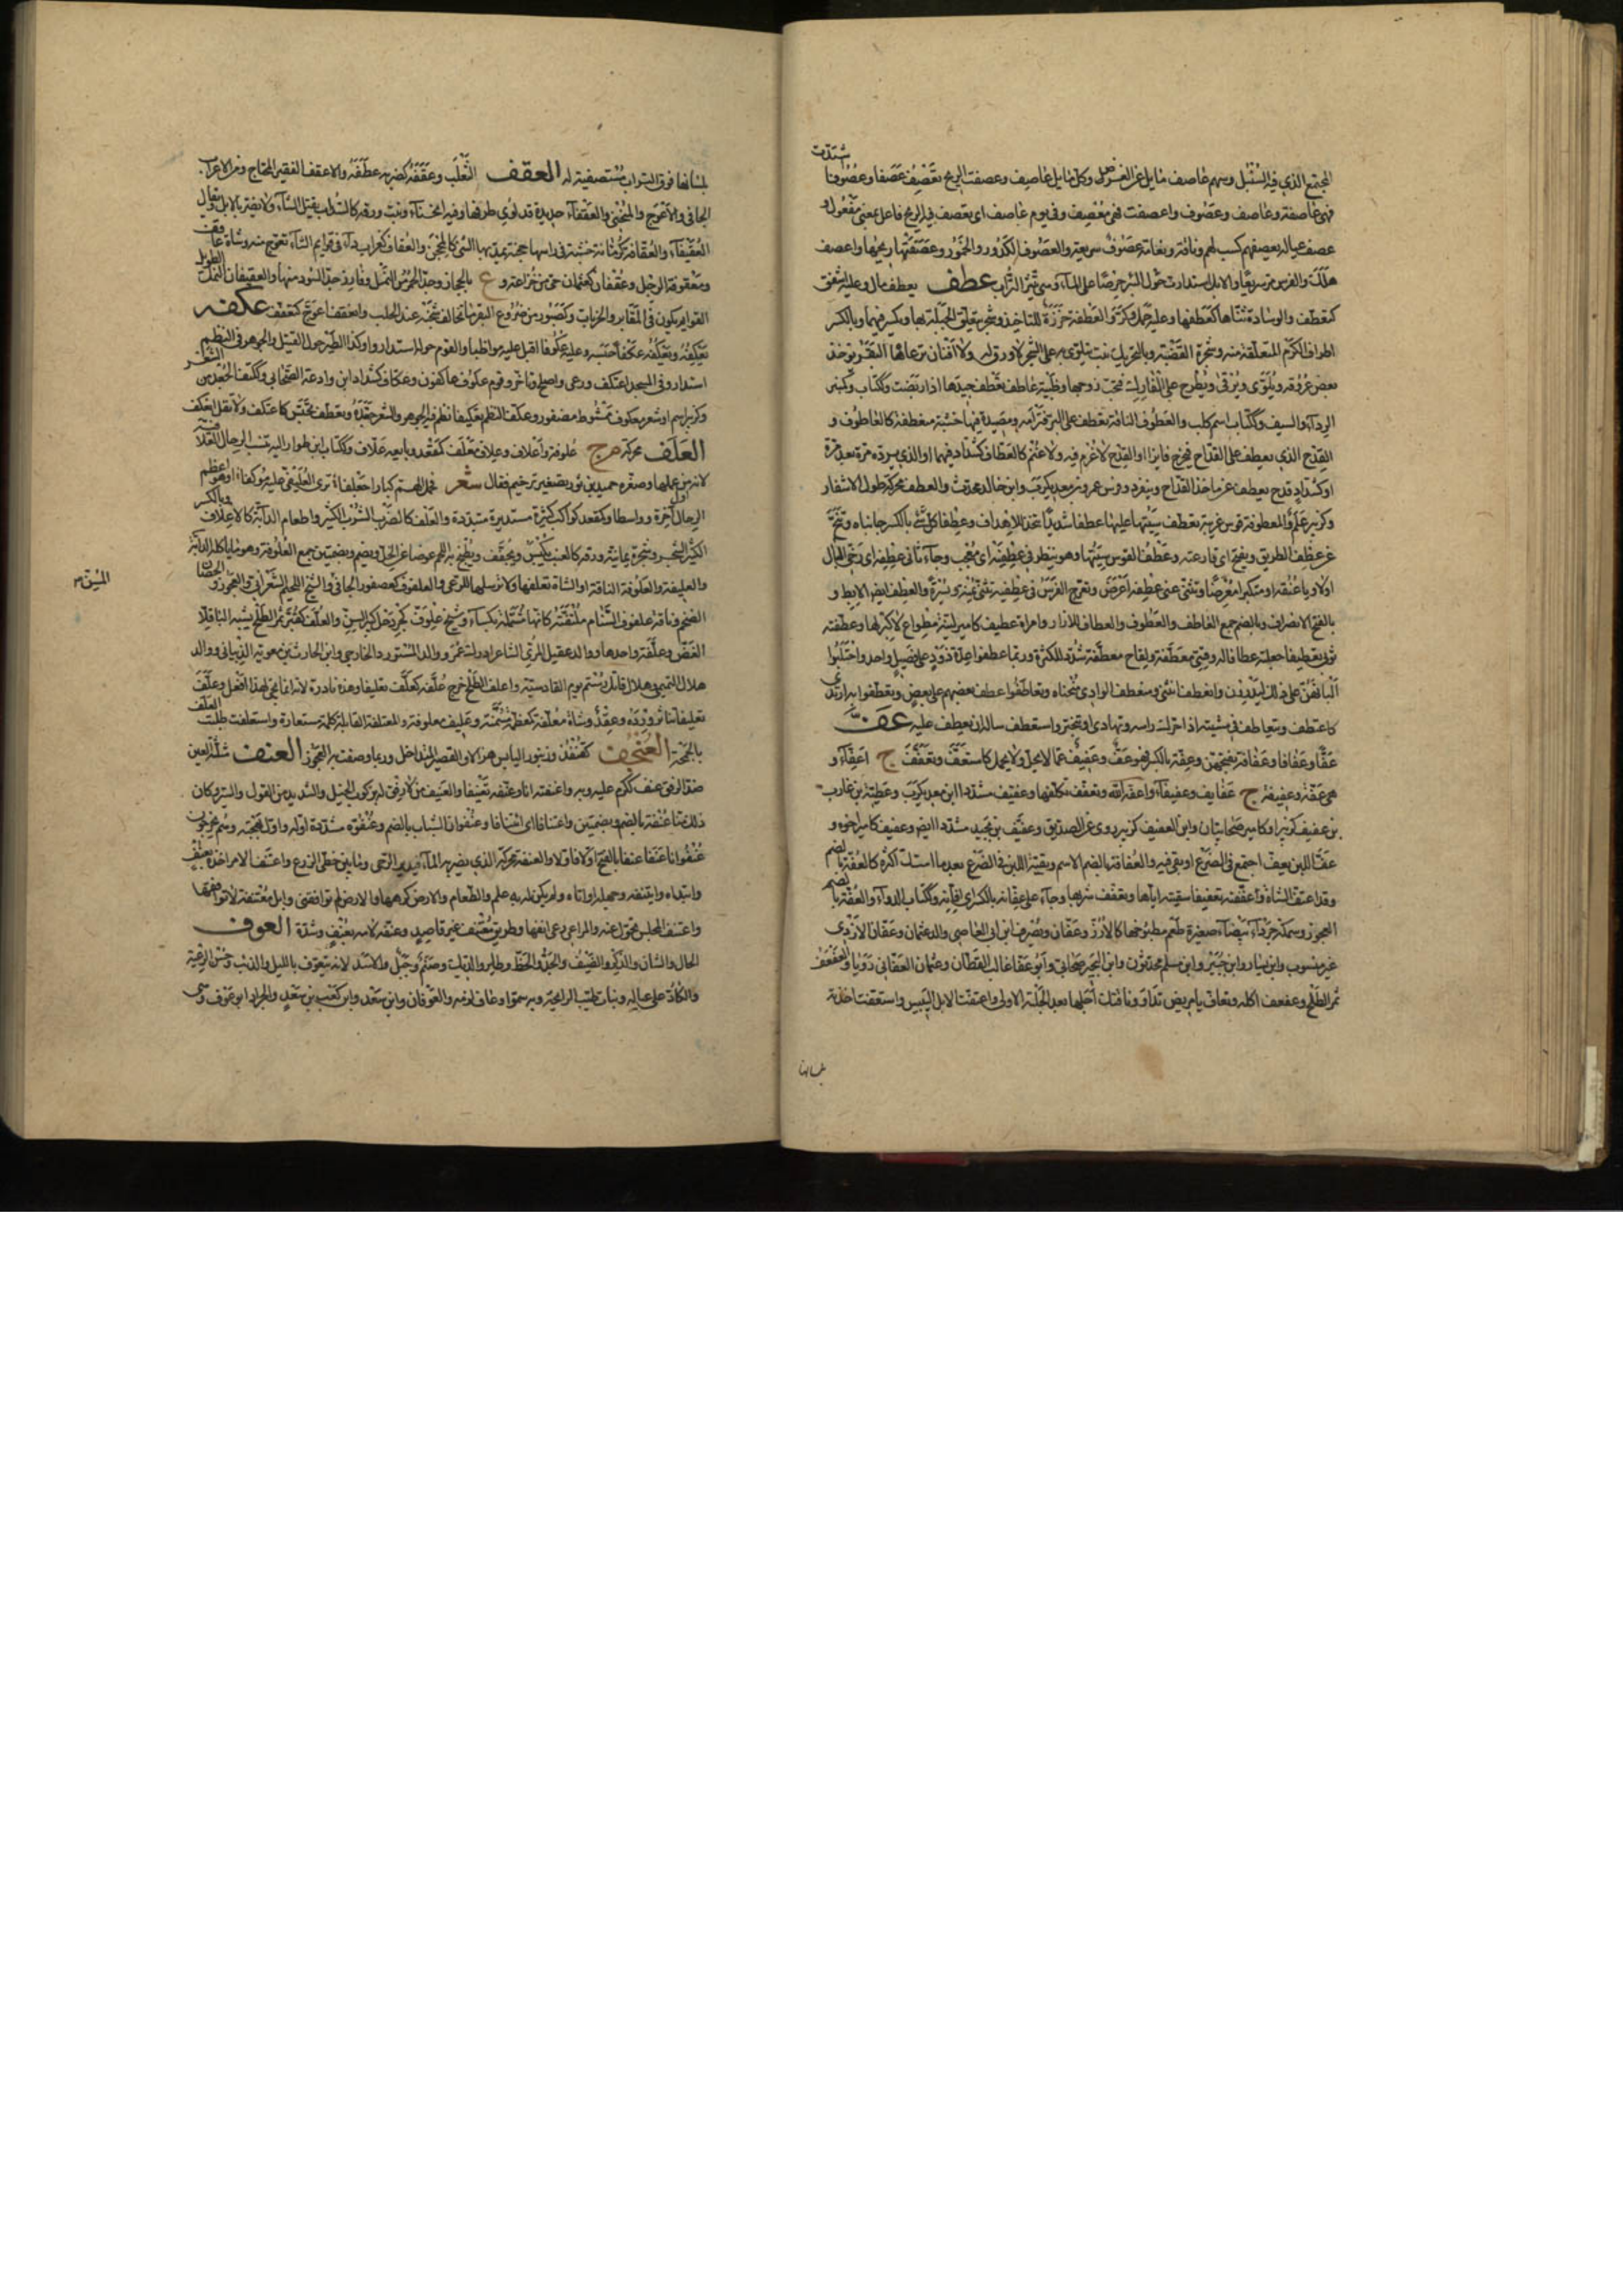 اشتدت
المجتمع الذي فيه السنبل وسهم عاصف مايل عن الغرض وكل مايل عاصف وعصفت الريح تعصف عصفا وعصوفا
فهي عاصفة وعاصف وعصوف واعصفت فهي معصف وفي يوم عاصف اي تعصف فيه الريح فاعل بمعنى مفعول و
عصف عياله يعصفهم كسب لهم وناقة ونعامة عصوف سريعة والعصوف الكدور والخمور وعصفتها ريحها واعصف
هلك والفرس مر سريعا والابل استدارت حول البئر حرصا على الماء وهي تثير التراب عطف يعطف مال وعليه اشفق
كتعطف والوسادة ثناها كعطفها وعليه حمل وكر والعطفة خرزة للتاخيذ وشجرة يتعلق الحبلة بها وبكسر فيهما وبالكسر
اطراف الكرم المتعلقة منه وشجرة العصبة وبالتحريك نبت يتلوى على الشجر لا ورق له ولا افنان ترعاها البقر يوخذ
بعض عروقه ويلوى ويرقى ويطرح على الفارك تحب زوجها وظبية عاطف تعطف جيدها اذا ربضت وككتاب وكمنبر
الرداء والسيف وككتاب اسم كلب والعطوف الناقة تعطف على البو فترامه ومصيدة فيها خشبة منعطفة كالعاطوف و
القدح الذي يعطف على القداح فيخرج فايزا او القدح لا غرم فيه ولا غنم كالعطاف كشداد فيهما او الذي يرد مرة بعد مرة
او كشداد قدح يعطف عن ماخذ القداح وينفرد وفرس عمرو بن معديكرب وابن خالد محدث والعطف محركة طول الاشفار
وكزبير علم والمعطوفة قوس عربية تعطف سيتها عليها عطفا شديدا تتخذ للاهداف وعطفا كل شيء بالكسر جانباه وتنح
عن عطف الطريق ويفتح اي قارعته وعطف القوس سيتها وهو ينظر في عطفيه اي معجب وجاء ثاني عطفه اي رخي البال
او لاويا عنقه او متكبرا معرضا وثنى عني عطفه اعرض وتعوج الفرس في عطفيه تثنى يمنة ويسرة والعطف ايضا الابط و
بالفتح الانصراف وبالضم جمع العاطف والعطوف والعطاف للازار وامراة عطيف كامير لينة مطواع لا كبر لها وعطفته
ثوبي تعطيفا جعلته عطافا له وقسي معطفة ولقاح معطفة شدد للكثرة وربما عطفوا عدة ذود على فصيل واحد واحتلبوا
البانهن على ذلك ليدررن وانعطف انثنى ومنعطف الوادي منحناه وتعاطفوا عطف بعضهم على بعض وتعطف به ارتدى
كاعتطف ويتعاطف في مشيته اذا حرك راسه وتهادى او تبختر واستعطف ساله ان يعطف عليه عف
عفا وعفافا وعفافة بفتحهن وعفة بالكسر فهو عف وعفيف كف عما لا يحل ولا يجمل كاستعف وتعفف ج اعفاء و
هي عفة وعفيفة ج عفايف وعفيفات واعفه الله وتعفف تكلفها وعفيف مشددا ابن معديكرب وعطية بن عازب
بن عفيف كزبير او كامير صحابيان وابن العفيف كزبير روى عن الصديق وعفيف بن بجيد مشددا ايضا وعفيف كامير اخوه و
بالضم
عف اللبن يعف اجتمع في الضرع او بقي فيه والعفافة بالضم الاسم وبقية اللبن في الضرع بعد ما امتك اكثره كالعفة
بالضم
وقد اعفت الشاة واعففته تعفيفا سقيته اياها وتعفف شربها وجاء على عفانه بالكسر اي ابانه وككتاب الدواء والعفة
العجوز وسمكة جرداء بيضاء صغيرة طعم مطبوخها كالارز وعفان ويصرف ابن ابي العاصي والد عثمان وعفان الازدي
غير منسوب وابن سيار وابن جبير وابن مسلم محدثون وابن البجير صحابي وابو عفان غالب القطان وعثمان العفاني رويا والعفعف
ثمر الطلح وعفعف اكله وتعاف يا مريض تداو وناقتك احلبها بعد الحلبة الاولى واعتفت الابل اليبيس واستعفت اخذته
بلسانها
بلسانها فوق التراب مستصفية له العقف الثعلب وعقفه كضربه عطفه والاعقف الفقير المحتاج ومن الاعراب
الجافي والاعوج والمنحني والعقفاء حديدة قد لوي طرفها وفيه انحناء ونبت ورقه كالسذاب يقتل الشاء ولا يضر بالابل يقال
العقيفاء والعقافة كرمانة خشبة في راسها حجنة يمد بها الشيء كالمحجن والعقاف كغراب داء في قوايم الشاء تعوج منه وشاة عاقف
الطويل
ومعقوفة الرجل وعقفان كعثمان حي من خزاعة وع بالحجاز وجد الحمر من النمل وفازر جد السود منها والعقيفان النمل
القوايم يكون في المقابر والخربات وكصبور من ضروع البقر ما تخالف شخبه عند الحلب وانعقف انعوج كتعقف عكفه
يعكفه ويعكفه عكفا حبسه وعليه عكوفا اقبل عليه مواظبا والقوم حوله استداروا وكذا الطير حول القتيل والجوهر في النظم
الشعر
استدار وفي المسجد اعتكف ورعى واصلح وتاخر وقوم عكوف عاكفون وعكاف كشداد ابن وداعة الصحابي وككتف الجعد من
وكزبير اسم او شعر معكوف ممشوط مضفور وعكف النظم تعكيفا نظم فيه الجوهر والشعر جعد وتعكف تحبس كاعتكف ولا تقل انعكف
العلف محركة م ج علوفة واعلاف وعلاف وموضعه معلف كمقعد وبايعه علاف وككتاب ابن طوار اليه تنسب الرحال العلافية
لانه من عملها وصغره حميد بن ثور تصغير ترخيم فقال شعر فحمل الهم كبارا جعلفا ترى العليفي عليها موكفا او هو اعظم
اول
وبالكسر
الرحال اخرة وواسطا وكمقعد كواكب كثيرة مستديرة متبددة والعلف كالضرب الشرب الكثير واطعام الدابة كالاعلاف
الكثير الشجر وشجرة يمانية ورقه كالعنب يكبس ويجفف ويطبخ به اللحم عوضا عن الخل ويضم وبضمتين جمع العلوفة وهو ما ياكله الدابة
المسن م
والعليفة والعلوفة الناقة او الشاة تعلفها ولا ترسلها للرعي والعلفوف كعصفور الجافي والشيخ اللحيم الشعراني والعجوز والحصان
الضخم وناقة علفوف السنام ملففته كانها مشتملة بكساء وشيخ علوف كجردحل كبير السن والعلف كقبر ثمر الطلح يشبه الباقلا
الغض وعلفة واحدها ووالد عقيل المري الشاعر ادرك عمر ووالد المستورد الخارجي وابن الحارث بن معوية الذبياني ووالد
هلال التيمي وهلال قاتل رستم يوم القادسية واعلف الطلح خرج علفه كعلف تعليفا وهذه نادرة لانه انما يجيء لهذا افعل وعلف
العلف
تعليفا تناثر ورده وعقد وشاة معلفة كمعظمة مسمنة وعليف معلوفة والمعتلفة القابلة كلمة مستعارة واستعلفت طلبت
بالحمحمة العنجف كقنفذ وزنبور اليابس هزالا والقصير المتداخل وربما وصفت به العجوز العنف مثلثة العين
ضد الرفق عنف ككرم عليه وبه واعنفته انا وعنفته تعنيفا والعنيف من لا رفق له بركوب الخيل والشديد من القول والسير وكان
ذلك منا عنفة بالضم وبضمتين واعتنافا اي ائتنافا وعنفوان الشباب بالضم وعنفوه مشددة اوله واول بهجته وهم يخرجون
عنفوانا عنفا عنفا بالفتح اولا فاولا والعنفة محركة الذي يضربه الماء فيدير الرحى وما بين خطي الزرع واعتنف الامر اخذه بعنف
وابتداه وايتنفه وجهله او اتاه ولم يكن له به علم والطعام والارض كرههما والارض لم توافقني وابل معتنفة لا توافقها
واعتنف المجلس تحول عنه والمراعي رعى انفها وطريق معتنف غير قاصد وعنفه لامه بعنف وشدة العوف
الحال والشان والذكر والضيف والجد والحظ وطاير والديك وصنم وجبل والاسد لانه يتعوف بالليل والذيب وحسن الرعية
والكاد على عياله ونبات طيب الرايحة وبه سموا وعاف لزمه والعوفان وابن سعد وابن كعب بن سعد والجراد ابو عوف وهي